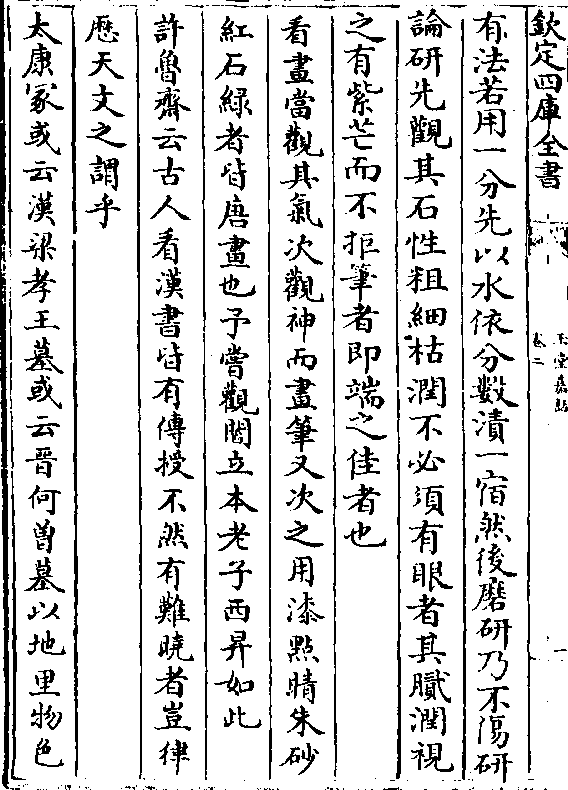 欽定四庫全書
玉堂嘉話
卷二
一
有法若用一分先以水依分數漬一宿然後磨研乃不傷研
論研先觀其石性粗細枯潤不必須有眼者其膩潤視
之有紫芒而不拒筆者即端之佳者也
看畫當觀其氣次觀神而畫筆又次之用漆㸃睛朱砂
紅石緑者皆唐畫也予嘗觀閻立本老子西昇如此
許魯齋云古人看漢書皆有傳授不然有難曉者豈律
厯天文之謂乎
太康冢或云漢梁孝王墓或云晋何曾墓以地里物色